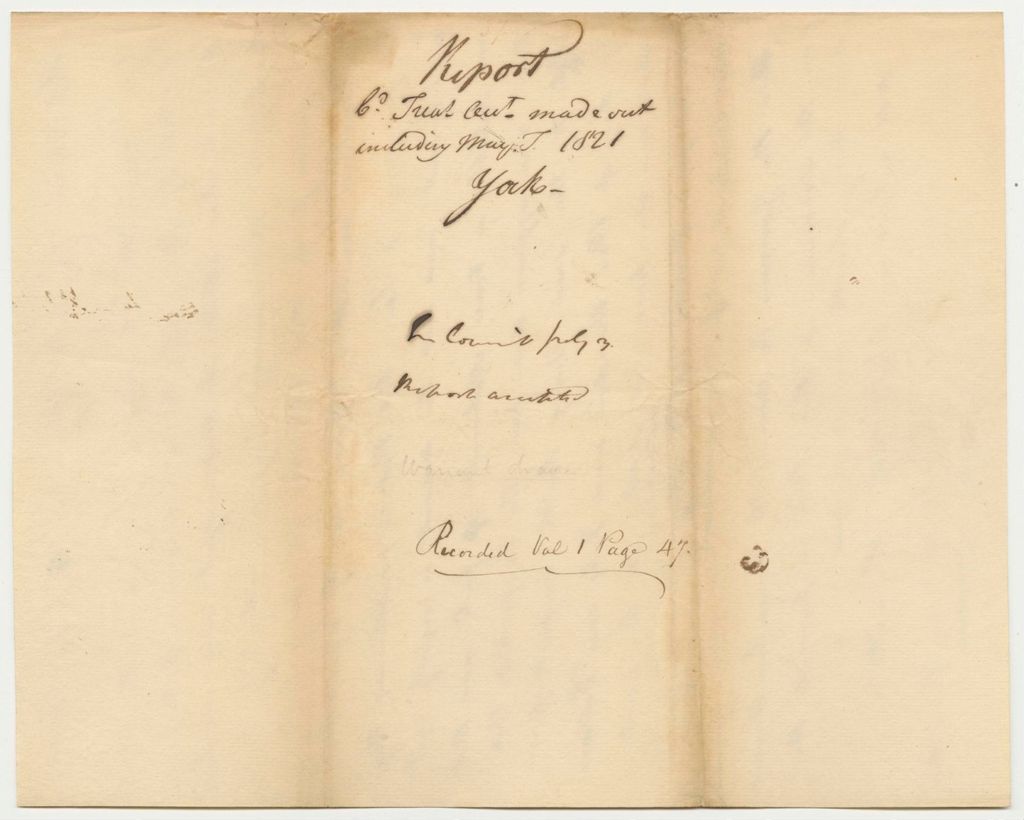 Report
Co. Treas Acct. made out
including May. T. 1821
York -
In Council July 3.
Report accepted
Warrant drawn
Recorded Vol 1 Page 47.